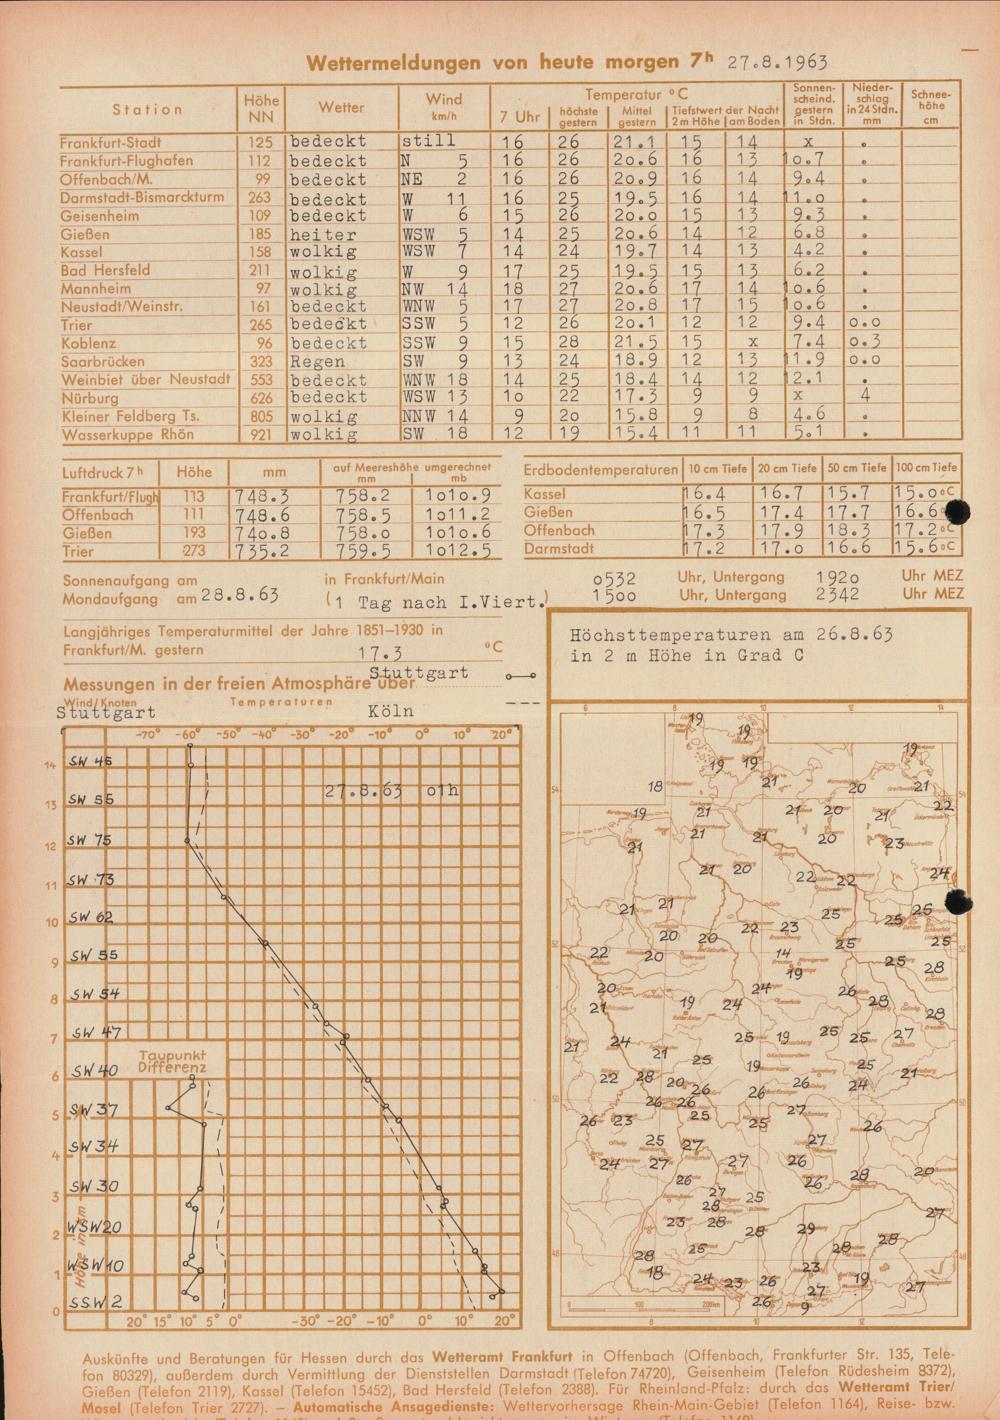 Wettermeldungen von heute morgen 7h 27.8.1963
Station Höhe NN Wetter Wind km/h Temperatur °C Sonnen-scheind. gestern in Stdn. Nieder-schlag in 24 Stdn. mm Schnee-höhe cm
7 Uhr höchste gestern Mittel gestern Tiefstwert der Nacht 2m Höhe am Boden
Frankfurt-Stadt 125 bedeckt still 16 26 21.1 15 14 x .
Frankfurt-Flughafen 112 bedeckt N 5 16 26 20.6 16 13 10.7 .
Offenbach/M. 99 bedeckt NE 2 16 26 20.9 16 14 9.4 .
Darmstadt-Bismarckturm 263 bedeckt W 11 16 25 19.5 16 14 11.0 .
Geisenheim 109 bedeckt W 6 15 26 20.0 15 13 9.3 .
Gießen 185 heiter WSW 5 14 25 20.6 14 12 6.8 .
Kassel 158 wolkig WSW 7 14 24 19.7 14 13 4.2 .
Bad Hersfeld 211 wolkig W 9 17 25 19.5 15 13 6.2 .
Mannheim 97 wolkig NW 14 18 27 20.6 17 14 10.6 .
Neustadt/Weinstr. 161 bedeckt WNW 5 17 27 20.8 17 15 10.6 .
Trier 265 bedeckt SSW 5 12 26 20.1 12 12 9.4 0.0
Koblenz 96 bedeckt SSW 9 15 28 21.5 15 x 7.4 0.3
Saarbrücken 323 Regen SW 9 13 24 18.9 12 13 11.9 0.0
Weinbiet über Neustadt 553 bedeckt WNW 18 14 25 18.4 14 12 12.1 .
Nürburg 626 bedeckt WSW 13 10 22 17.3 9 9 x 4
Kleiner Feldberg Ts. 805 wolkig NNW 14 9 20 15.8 9 8 4.6 .
Wasserkuppe Rhön 921 wolkig SW 18 12 19 15.4 11 11 5.1 .
Luftdruck 7h Höhe mm auf Meereshöhe umgerechnet mm mb
Frankfurt/Flugh 113 748.3 758.2 1010.9
Offenbach 111 748.6 758.5 1011.2
Gießen 193 740.8 758.0 1010.6
Trier 273 735.2 759.5 1012.5
Erdbodentemperaturen 10 cm Tiefe 20 cm Tiefe 50 cm Tiefe 100 cm Tiefe
Kassel 16.4 16.7 15.7 15.0°C
Gießen 16.5 17.4 17.7 16.6
Offenbach 17.3 17.9 18.3 17.2°C
Darmstadt 17.2 17.0 16.6 15.6°C
Sonnenaufgang am 28.8.63 in Frankfurt/Main 0532 Uhr, Untergang 1920 Uhr MEZ
Mondaufgang am (1 Tag nach I.Viert.) 1500 Uhr, Untergang 2342 Uhr MEZ
Langjähriges Temperaturmittel der Jahre 1851–1930 in
Frankfurt/M. gestern 17.3 °C
Messungen in der freien Atmosphäre über Stuttgart
Wind/Knoten Temperaturen
Stuttgart Köln
-70° -60° -50° -40° -30° -20° -10° 0° 10° 20°
27.8.63 01h
14 SW 46
13 SW 55
12 SW 75
11 SW 73
10 SW 62
9 SW 55
8 SW 54
7 SW 47
6 SW 40
Taupunkt
Differenz
5 SW 37
4 SW 34
3 SW 30
2 WSW 20
1 WSW 10
0 SSW 2
Höhe in km
20° 15° 10° 5° 0° -30° -20° -10° 0° 10° 20°
Höchsttemperaturen am 26.8.63
in 2 m Höhe in Grad C
6 8 10 12 14
19 19 19
19 19
18 21 20 21
19 21 21 20 21 22
21 21 21 20 23
21 20 22 22 24
21 21 25 25 25
20 20 22 23 25 25
22 20 14 19 25 28
20 19 24 24 26 28
21 28
21 24 21 25 25 19 25 25 27
22 28 20 26 19 26 26 25 24 21
26 23 26 26 25 27 26
24 25 27 27 27 26 27
26 26 28 20
27 28 25 27
23 28 28 29 28 28
28 18 25 23 19
24 23 26 27 27
26 9
0 100 200km
8 10 12
Auskünfte und Beratungen für Hessen durch das Wetteramt Frankfurt in Offenbach (Offenbach, Frankfurter Str. 135, Tele-
fon 80329), außerdem durch Vermittlung der Dienststellen Darmstadt (Telefon 74720), Geisenheim (Telefon Rüdesheim 8372),
Gießen (Telefon 2119), Kassel (Telefon 15452), Bad Hersfeld (Telefon 2388). Für Rheinland-Pfalz: durch das Wetteramt Trier/
Mosel (Telefon Trier 2727). — Automatische Ansagedienste: Wettervorhersage Rhein-Main-Gebiet (Telefon 1164), Reise- bzw.